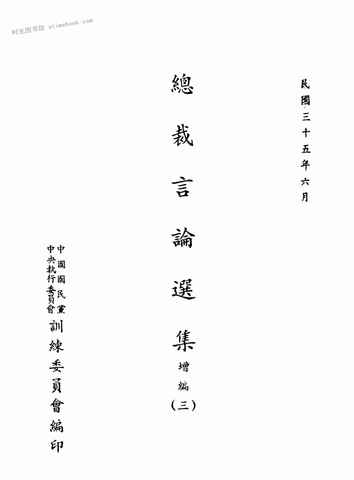 时光图书馆 stimebook.com
民國三十五年六月
總裁言論選集增編(三)
中國國民黨
中央執行委員會
訓練委員會編印